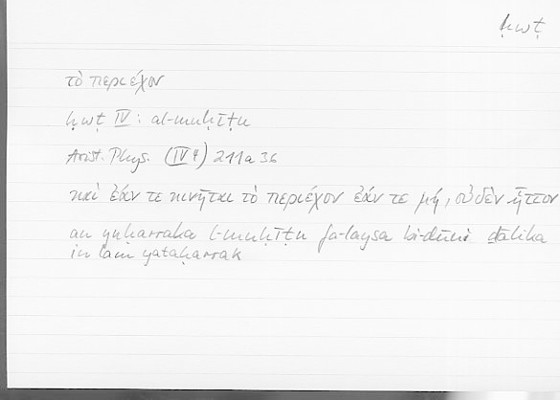 ḥwṭ
τὸ περιέχον
ḥwṭ IV: al-muḥīṭu
Arist. Phys. (IV 4) 211a36
καὶ ἐάν τε κινῆται τὸ περιέχον ἐάν τε μή, οὐδὲν ἧττον
an yuḥarraka l-muḥīṭu fa-laysa bi-dūni ḏalika
in lam yataḥarrak